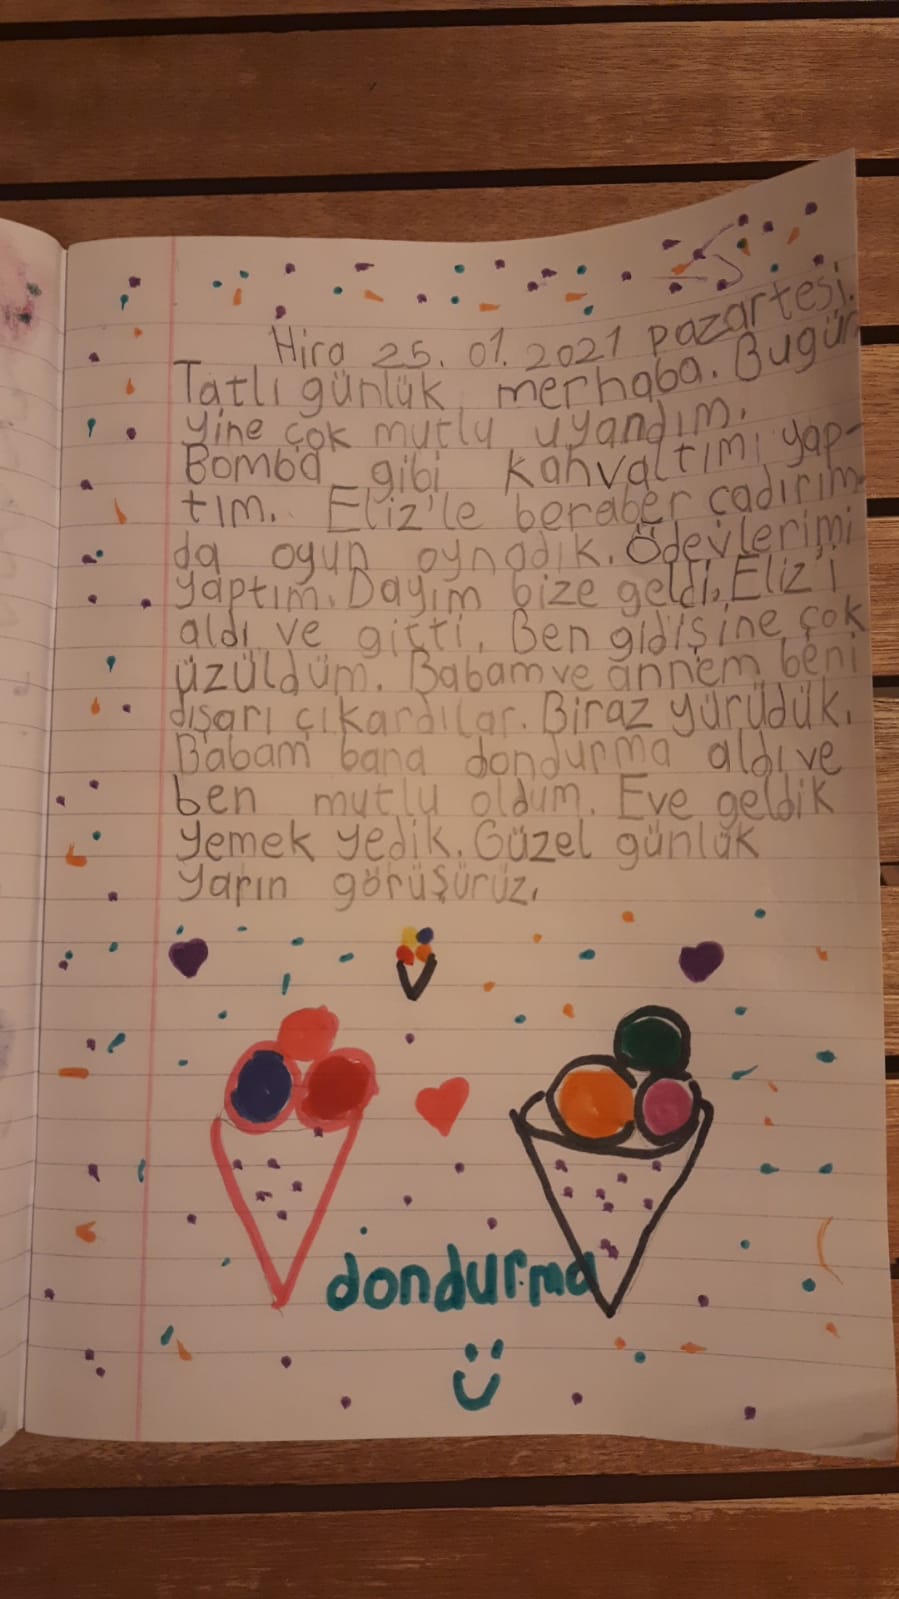 Hira 25.01.2021 pazartesi.
Tatlı günlük merhaba. Bugün
yine çok mutlu uyandım.
Bomba gibi kahvaltımı yap-
tım. Eliz'le beraber çadırım
da oyun oynadık. Ödevlerimi
yaptım. Dayım bize geldi. Eliz'i
aldı ve gitti. Ben gidişine çok
üzüldüm. Babam ve annem beni
dışarı çıkardılar. Biraz yürüdük.
Babam bana dondurma aldı ve
ben mutlu oldum. Eve geldik
yemek yedik. Güzel günlük
yarın görüşürüz.
dondurma